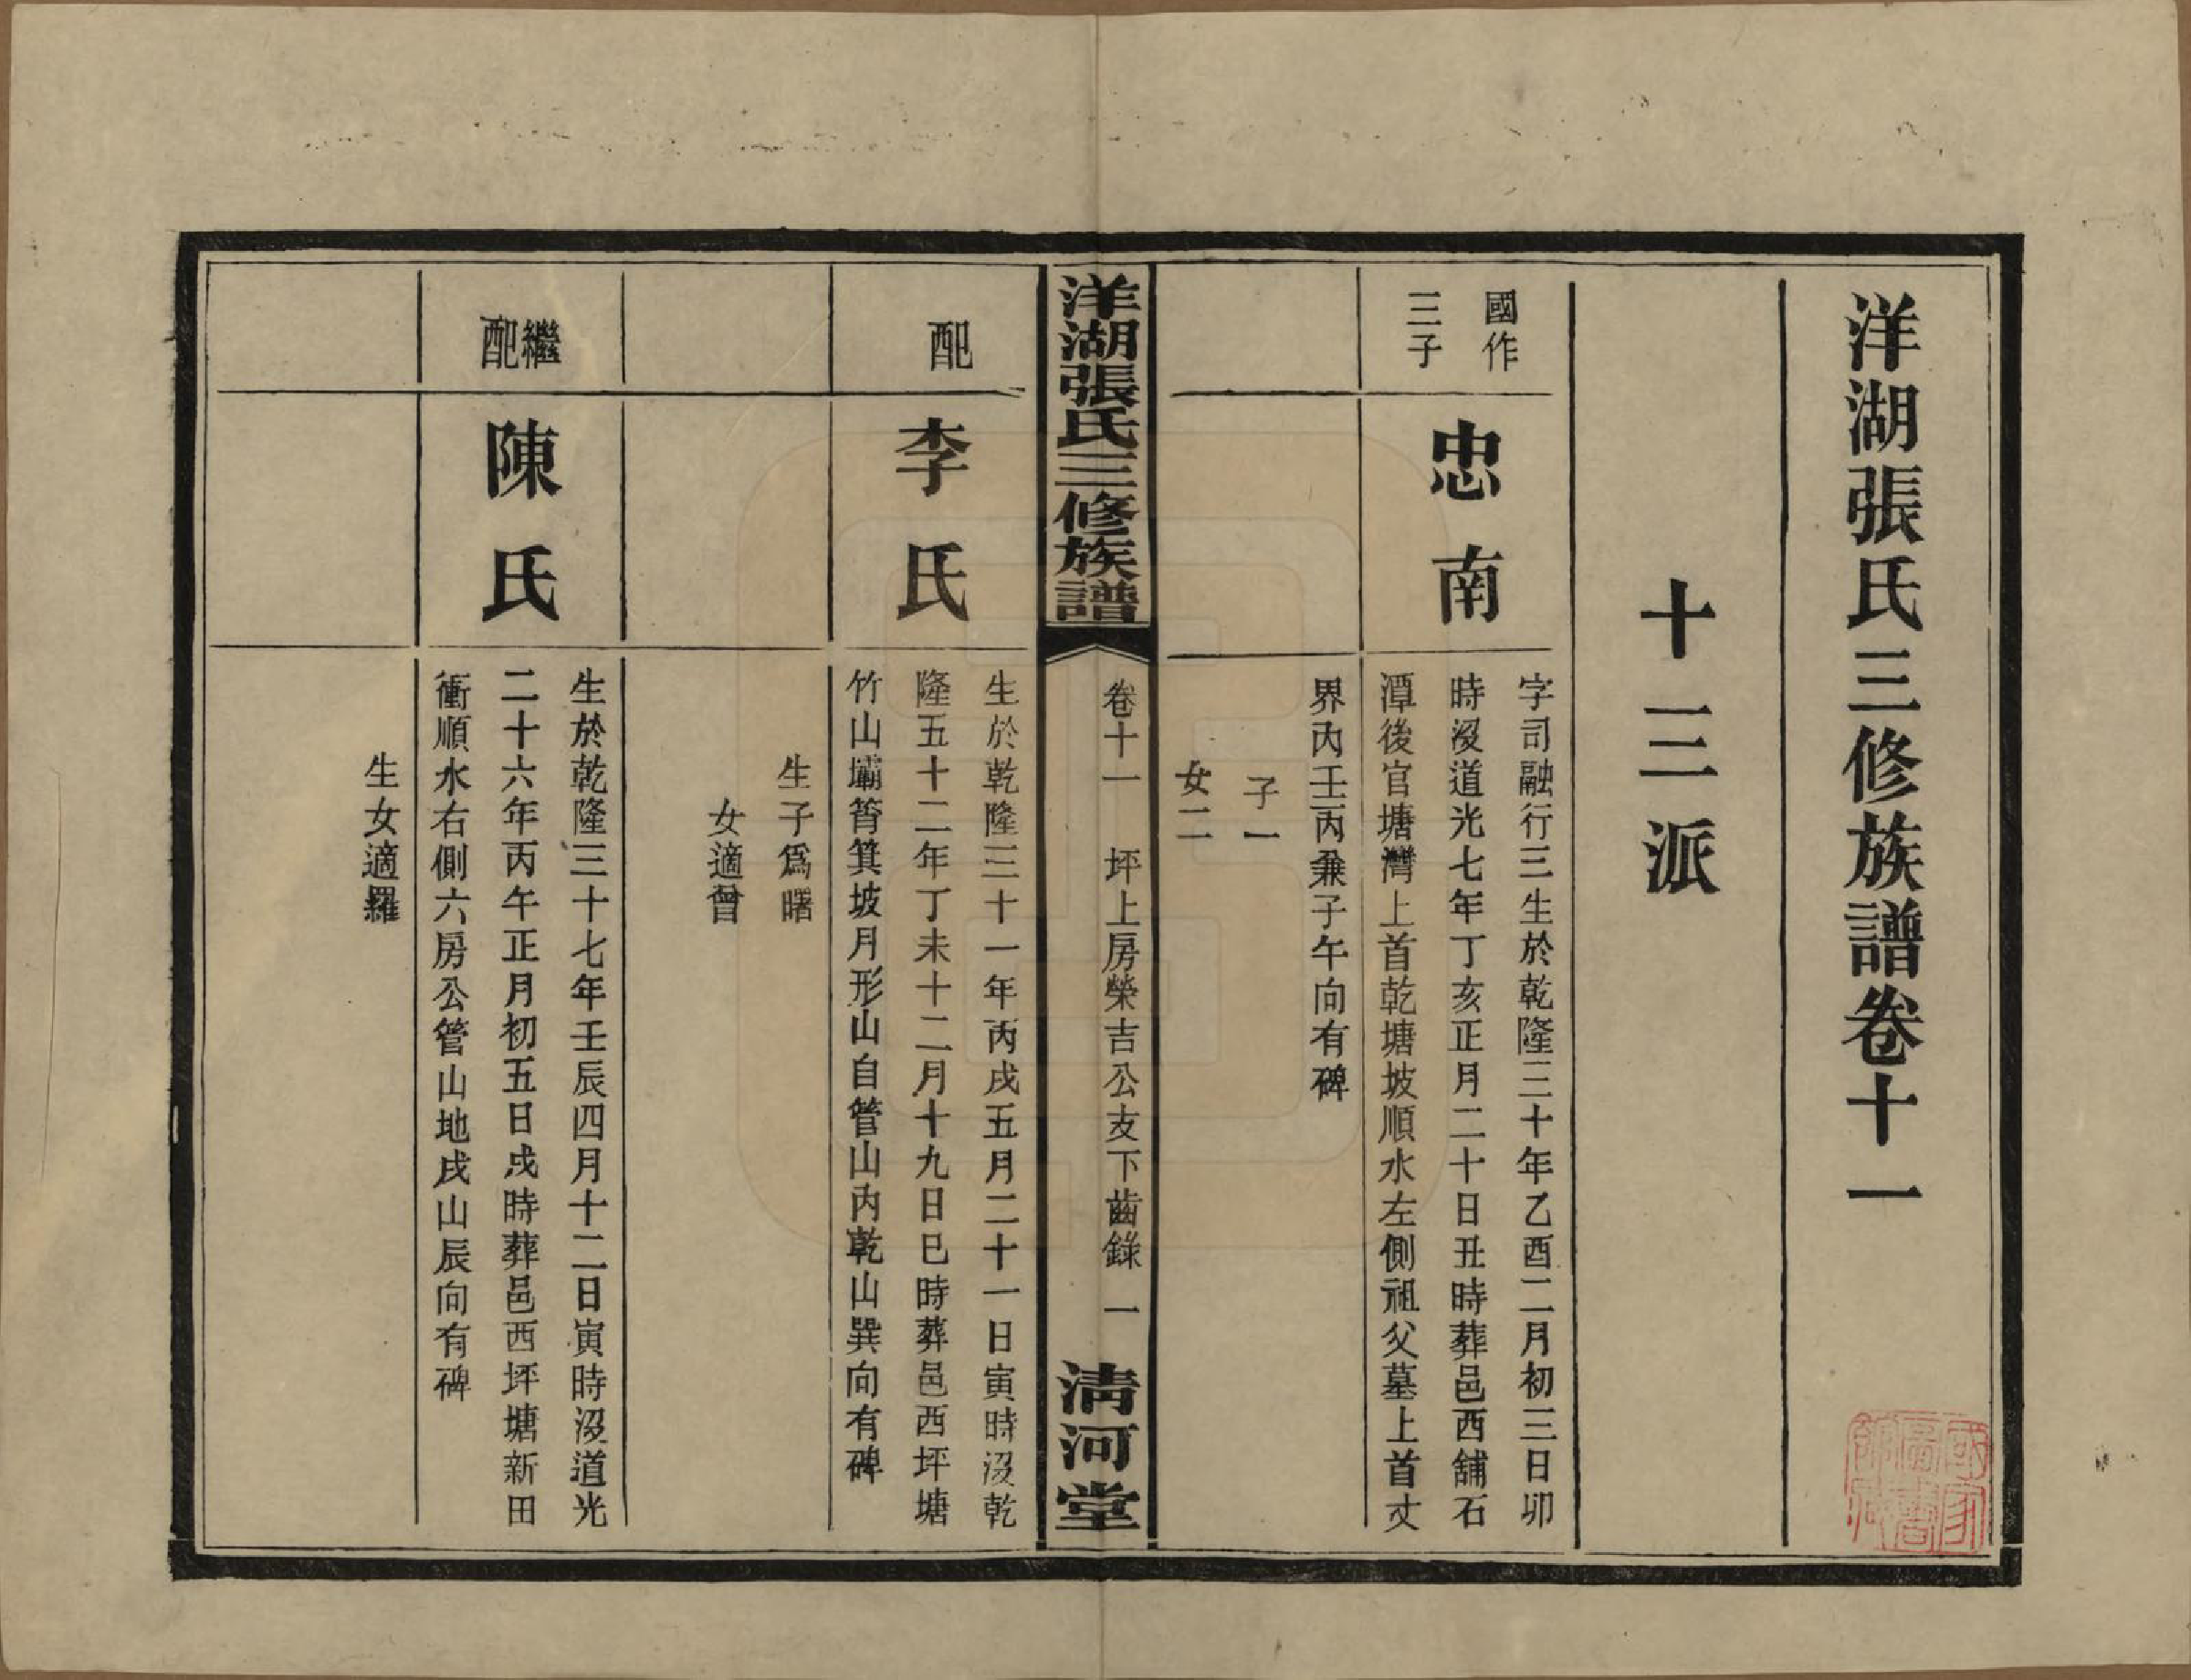 洋湖張氏三修族譜卷十一
十三派
國作
三子
忠南
字司融行三生於乾隆三十年乙酉二月初三日卯
時沒道光七年丁亥正月二十日丑時葬邑西舖石
潭後官塘灣上首乾塘坡順水左側祖父墓上首丈
界內壬丙兼子午向有碑
子一
女二
洋湖張氏三修族譜
卷十一
坪上房榮吉公支下齒錄
一
清河堂
配
李氏
生於乾隆三十一年丙戌五月二十一日寅時沒乾
隆五十二年丁未十二月十九日巳時葬邑西坪塘
竹山壩筲箕坡月形山自管山內乾山巽向有碑
生子爲曙
女適曾
繼配
陳氏
生於乾隆三十七年壬辰四月十二日寅時沒道光
二十六年丙午正月初五日戌時葬邑西坪塘新田
衝順水右側六房公管山地戌山辰向有碑
生女適羅
國家圖書館藏